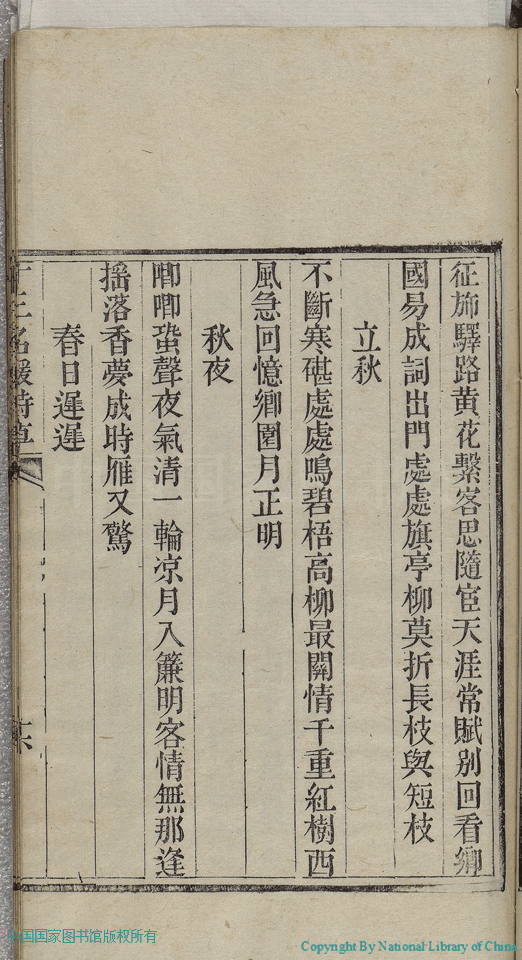 征斾驛路黄花繫客思隨宦天涯常賦别回看鄉
國易成詞出門處處旗亭柳莫折長枝與短枝
立秋
不斷寒碪處處鳴碧梧高柳最關情千重紅樹西
風急回憶鄉園月正明
秋夜
唧唧蛩聲夜氣清一輪凉月入簾明客情無那逢
揺落香夢成時雁又驚
春日遲遲
名媛詩草
中国国家图书馆版权所有
Copyright By National Library of China